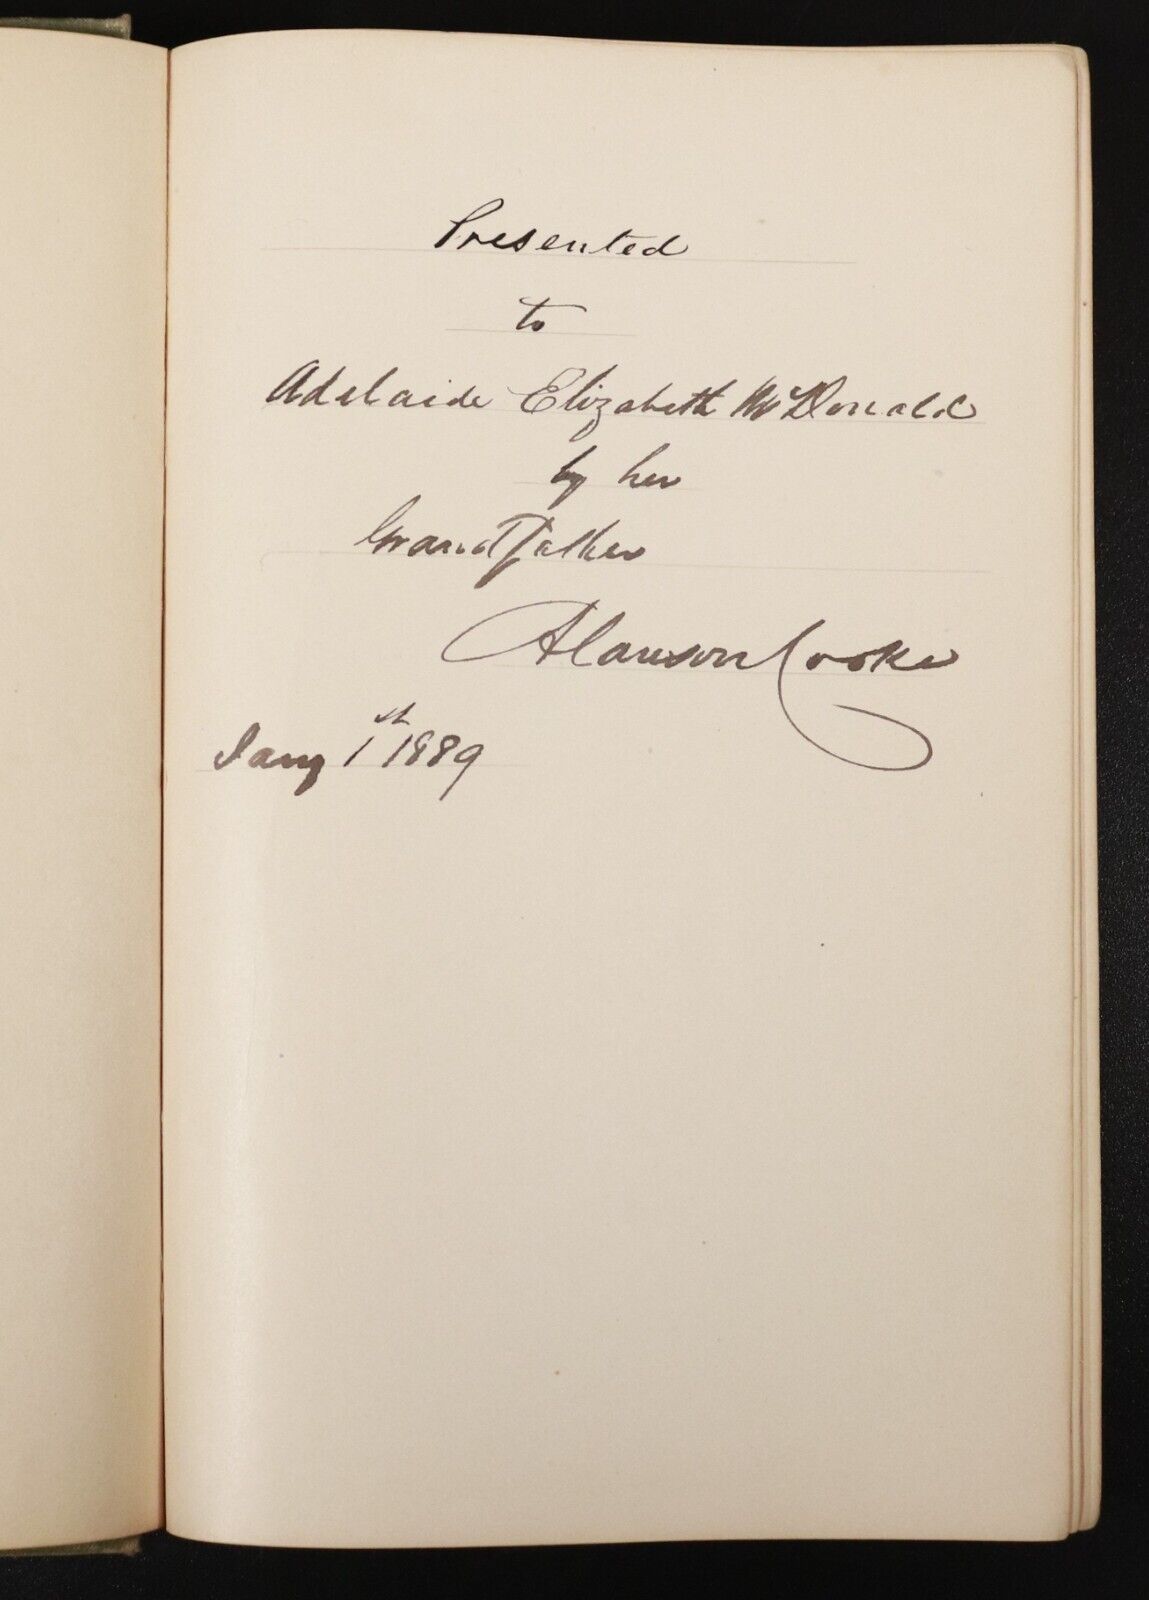 Presented
to
Adelaide Elizabeth McDonald
by her
Grandfather
Alanson Cooke
Jany 1st 1889